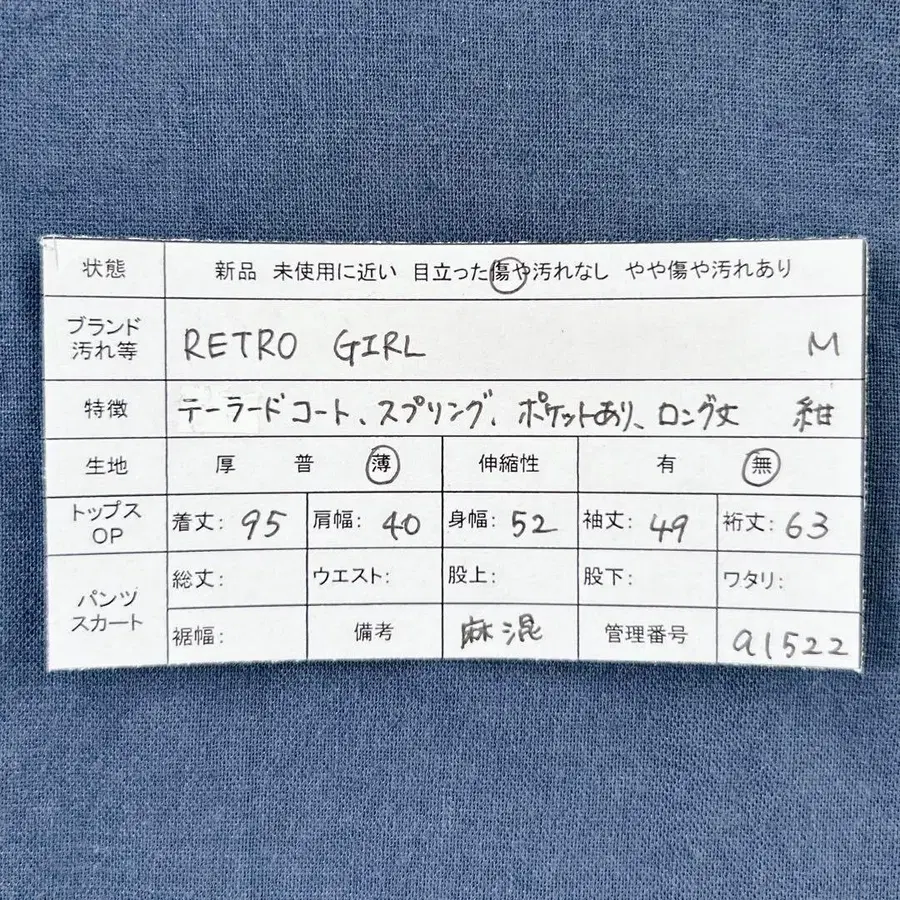 状態 新品 未使用に近い 目立った傷や汚れなし やや傷や汚れあり
ブランド
汚れ等 RETRO GIRL M
特徴 テーラードコート、スプリング、ポケットあり、ロング丈 紺
生地 厚 普 薄 伸縮性 有 無
トップス
OP 着丈: 95 肩幅: 40 身幅: 52 袖丈: 49 裄丈: 63
パンツ
スカート 総丈: ウエスト: 股上: 股下: ワタリ:
裾幅: 備考 麻混 管理番号 a1522